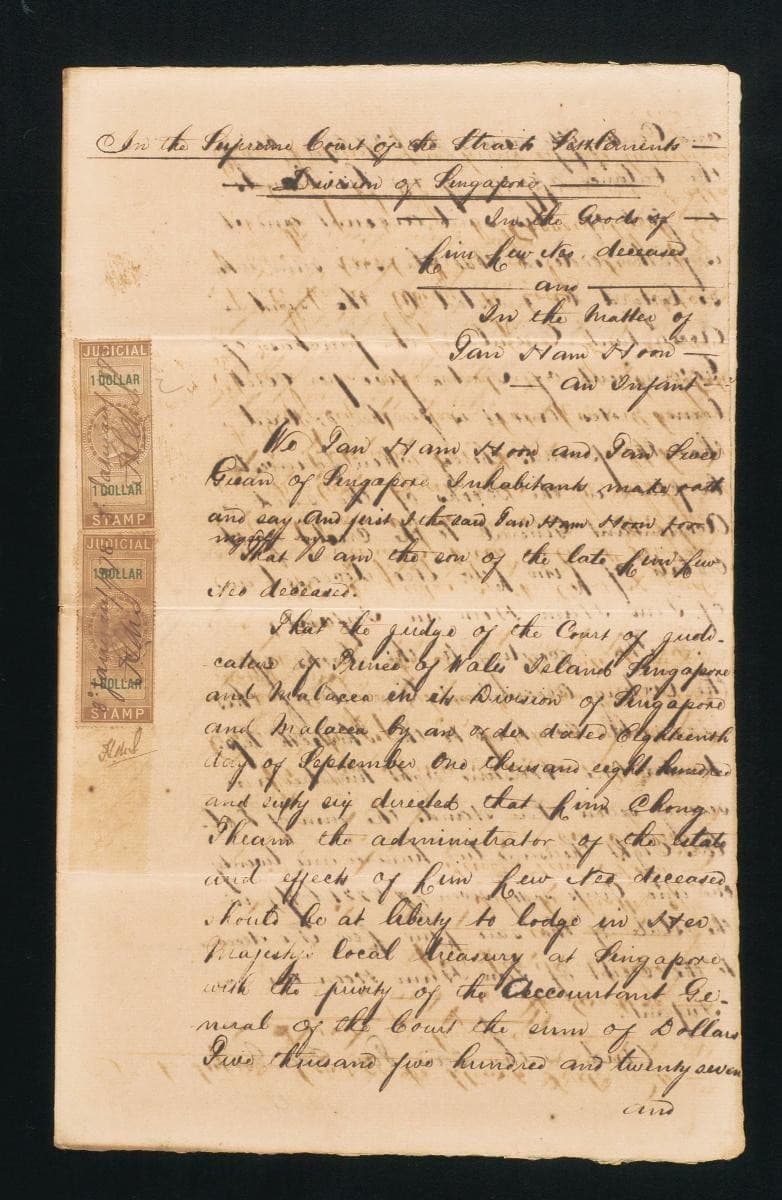 In the Supreme Court of the Straits Settlements
Division of Singapore
In the Goods of
Lim Lew Neo deceased
and
In the Matter of
Tan Ham Hoon
an Infant
We Tan Ham Hoon and Tan Swee
Guan of Singapore Inhabitants make oath
and say And first I the said Tan Ham Hoon for
myself say
That I am the son of the late Lim Lew
Neo deceased.
That the judge of the Court of judi-
cature of Prince of Wales Island Singapore
and Malacca in its Division of Singapore
and Malacca by an order dated Eighteenth
day of September One thousand eight hundred
and sixty six directed that Lim Chong
Theam the administrator of the Estate
and effects of Lim Lew Neo deceased
should be at liberty to lodge in Her
Majesty's local treasury at Singapore
with the privity of the Accountant Ge-
neral of the Court the sum of Dollars
Two thousand five hundred and twenty seven
and
JUDICIAL
1 DOLLAR
1 DOLLAR
STAMP
JUDICIAL
1 DOLLAR
1 DOLLAR
STAMP